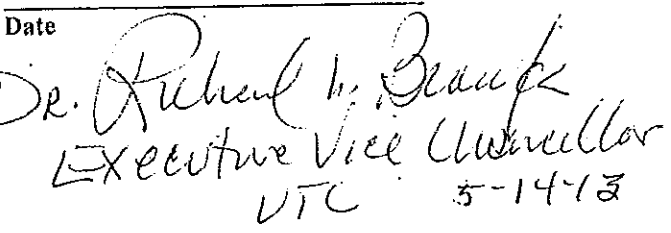 Date
Dr. Richard L. Brown
Executive Vice Chancellor
UTC 5-14-13